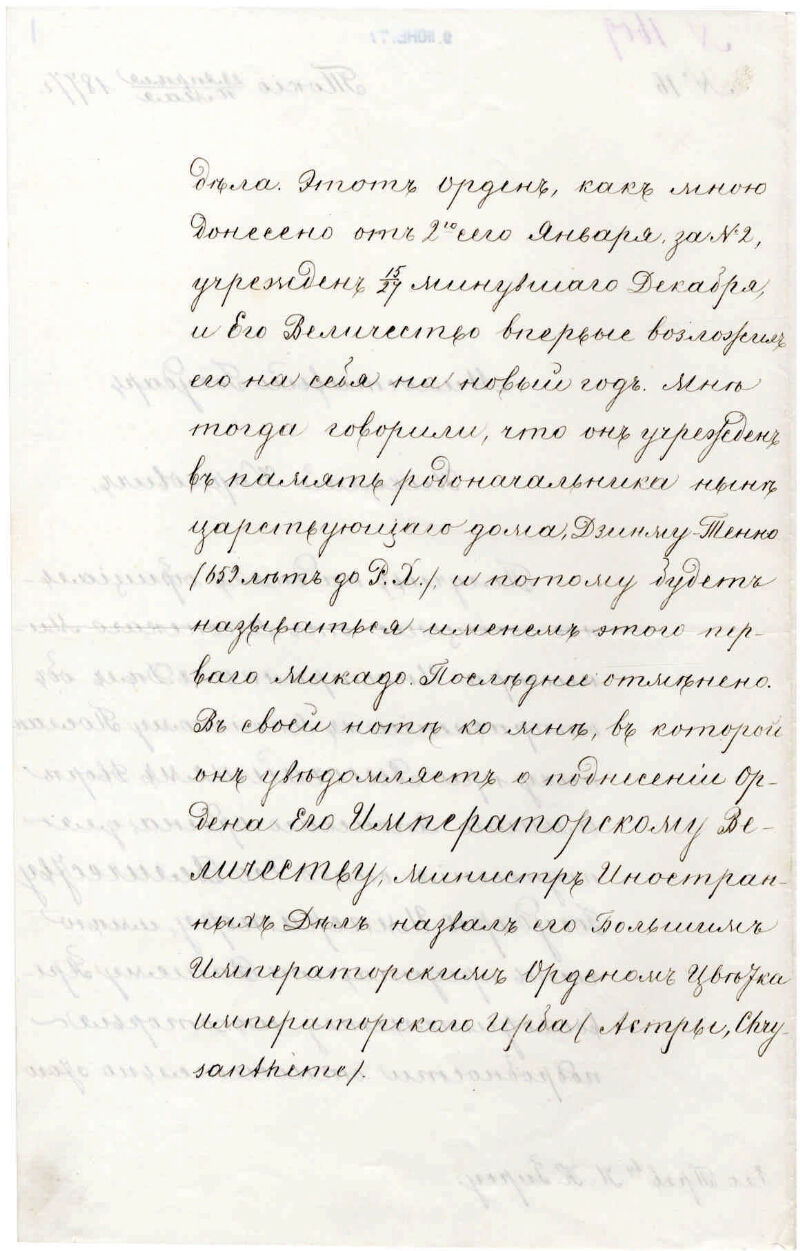 дѣла. Этотъ Орденъ, какъ мною
донесено отъ 2го сего Января, за №2,
учрежденъ 15/27 минувшаго Декабря,
и Его Величество впервые возложилъ
его на себя на новый годъ. Мнѣ
тогда говорили, что онъ учрежденъ
въ память родоначальника нынѣ
царствующаго дома, Дзинму-Тенно
/659 лѣтъ до Р.Х./, и потому будетъ
называться именемъ этого пер-
ваго Микадо. Послѣднее отмѣнено.
Въ своей нотѣ ко мнѣ, въ которой
онъ увѣдомляетъ о поднесеніи Ор-
дена Его Императорскому Ве-
личеству, Министръ Иностран-
ныхъ Дѣлъ назвалъ его Большимъ
Императорскимъ Орденомъ Цвѣтка
Императорскаго Герба / Астры, Chry-
santhème/.